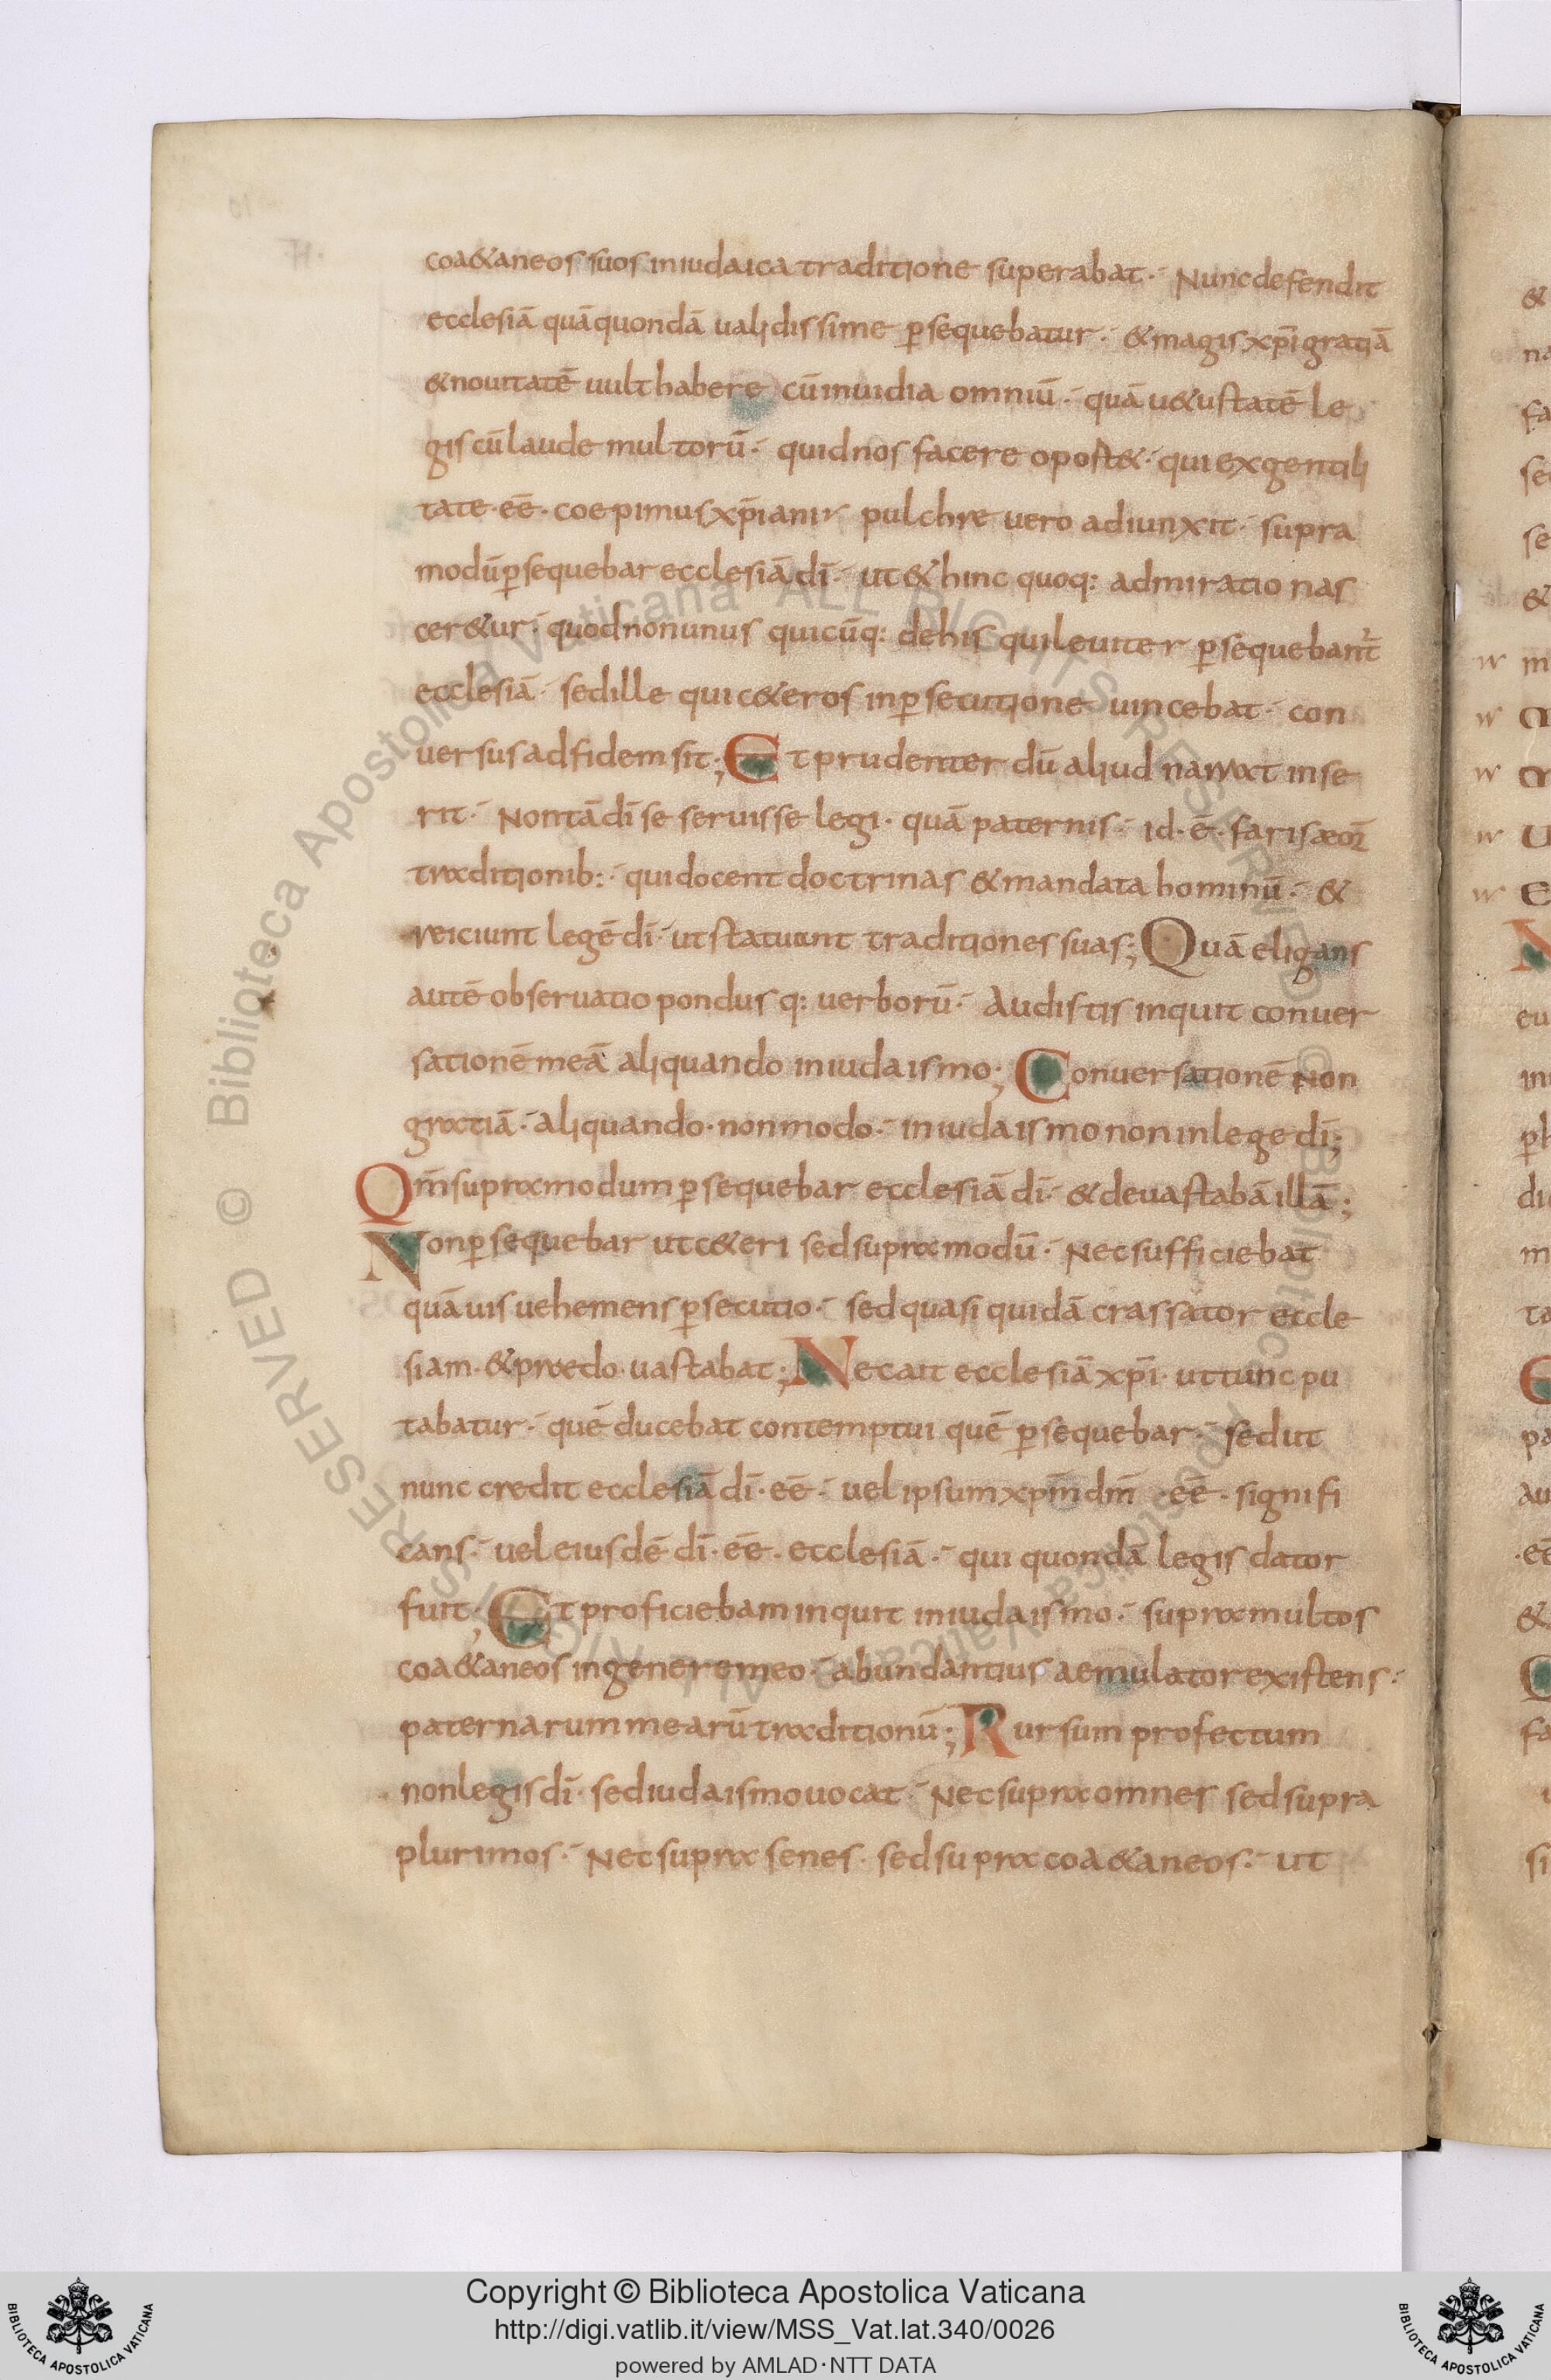 coa&aneos suos in iudaica traditione superabat· Nunc defendit
ecclesiā quā quondā ualidissime ꝑsequebatur· & magis xp̄i gratiā
& nouitatē uult habere cū inuidia omniū· quā u&ustatē le
gis cū laude multorū· quid nos facere oport&· qui ex gentili
tate·eē·coepimus xp̄iani· pulchre uero adiunxit· supra
modū ꝑsequebar ecclesiā dī· ut & hinc quoq: admiratio nas
cer&ur· quod non unus quicūq: de his qui leuiter ꝑsequebant̄
ecclesiā· sed ille qui c&eros in ꝑsecutione uincebat· con
uersus ad fidem sit; Et prudenter dū aliud narrat inse
rit· Non tā dī se seruisse legi· quā paternis· id·ē·farisaeoꝝ
traditionib:· qui docent doctrinas & mandata hominū· &
reiciunt legē dī· ut statuant traditiones suas; Quā eligans
autē obseruatio pondusq: uerborū· Audistis inquit conuer
sationē meā aliquando in iudaismo; Conuersationē non
gratiā· aliquando·non modo· in iudaismo non in lege dī;
Qm̄ supra modum ꝑsequebar ecclesiā dī· & deuastabā illā;
Non ꝑsequebar ut c&eri sed supra modū· Nec sufficiebat
quāuis uehemens ꝑsecutio· sed quasi quidā crassator eccle
siam·& praedo·uastabat; Nec ait ecclesiā xp̄i· ut tunc pu
tabatur· quē ducebat contemptui quē ꝑsequebar· sed ut
nunc credit ecclesiā dī·eē· uel ipsum xp̄m dm̄ ·eē·signifi
cans· uel eiusdē dī·eē·ecclesiā· qui quondā legis dator
fuit; Et proficiebam inquit in iudaismo· supra multos
coa&aneos in genere meo· abundantius aemulator existens·
paternarum mearū traditionū; Rursum profectum
non legis dī· sed iudaismo uocat· Nec supra omnes sed supra
plurimos· Nec supra senes· sed supra coa&aneos· ut
Copyright © Biblioteca Apostolica Vaticana
http://digi.vatlib.it/view/MSS_Vat.lat.340/0026
powered by AMLAD·NTT DATA
BIBLIOTECA APOSTOLICA VATICANA
BIBLIOTECA APOSTOLICA VATICANA